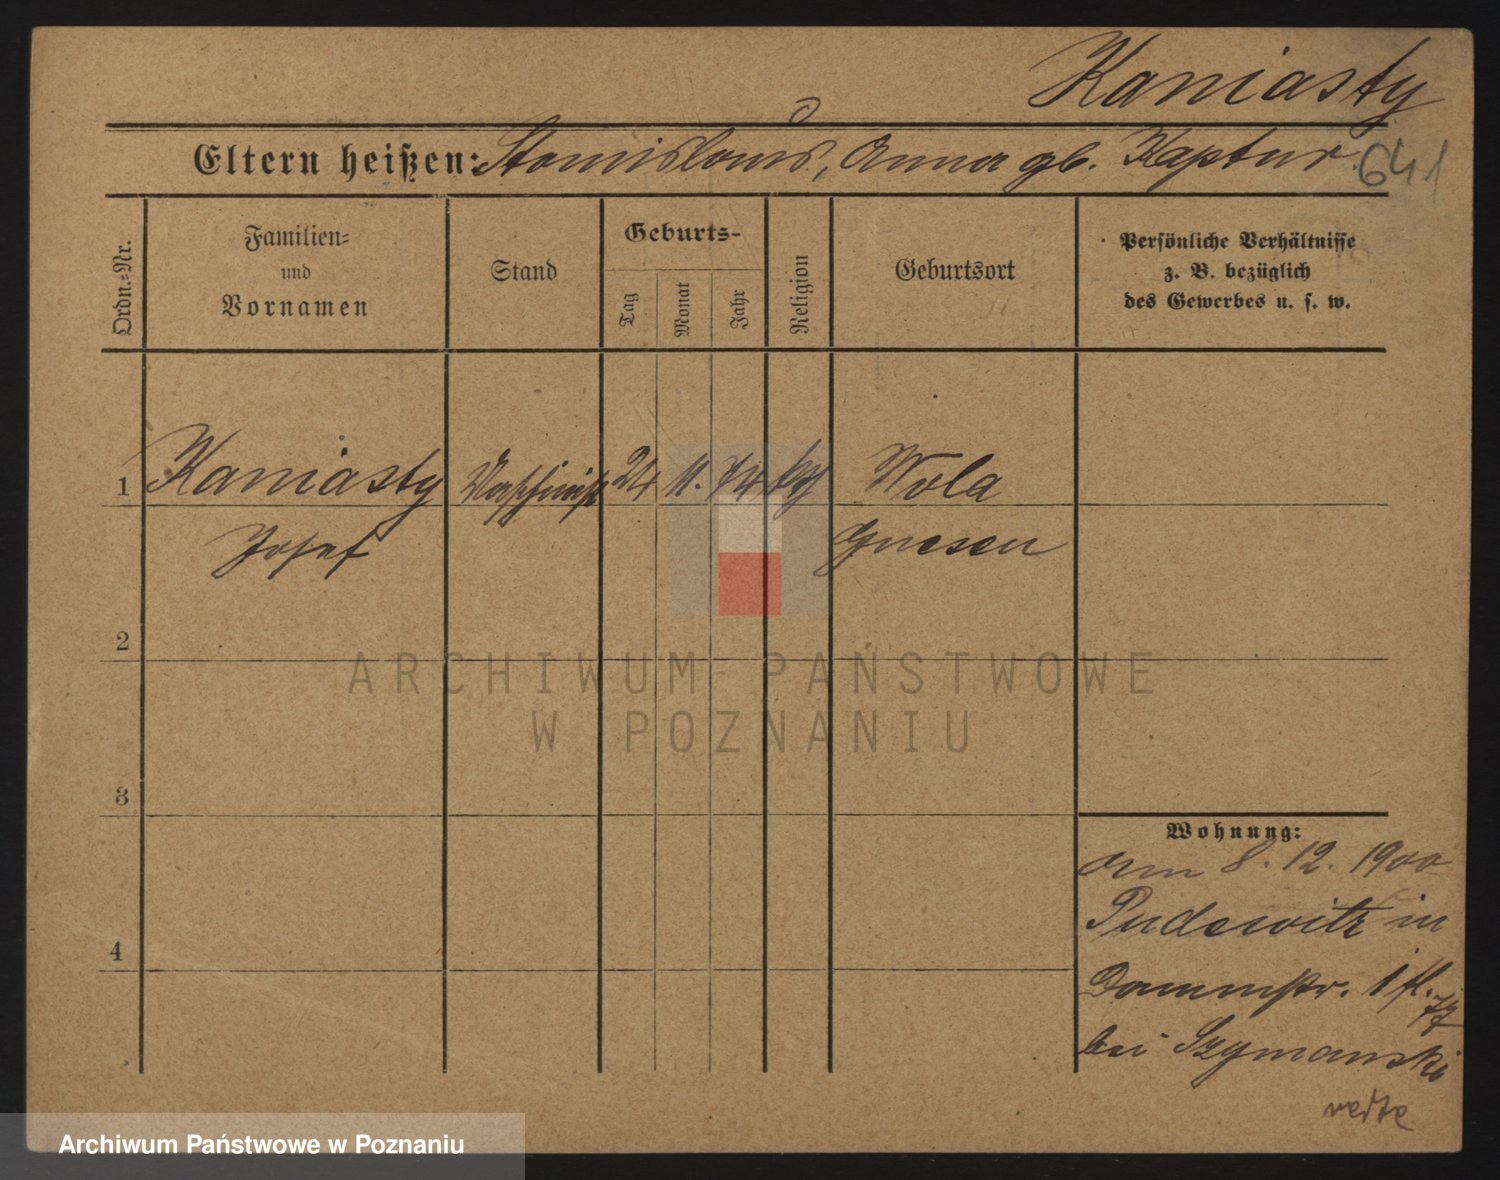 Kaniasty
Eltern heißen: Stanislaus, Anna gb. Kaptur
641
Ordn.-Nr.
Familien-
und
Vornamen
Stand
Geburts-
Tag
Monat
Jahr
Religion
Geburtsort
Persönliche Verhältnisse
z. B. bezüglich
des Gewerbes u. s. w.
1 Kaniasty Maschinist 24 11. 74 kg Wola
Josef Gnesen
2
3
4
Wohnung:
am 8. 12. 1900
Pudewitz in
Dammstr. 1
bei Szymanski
verte
ARCHIWUM PAŃSTWOWE
W POZNANIU
Archiwum Państwowe w Poznaniu